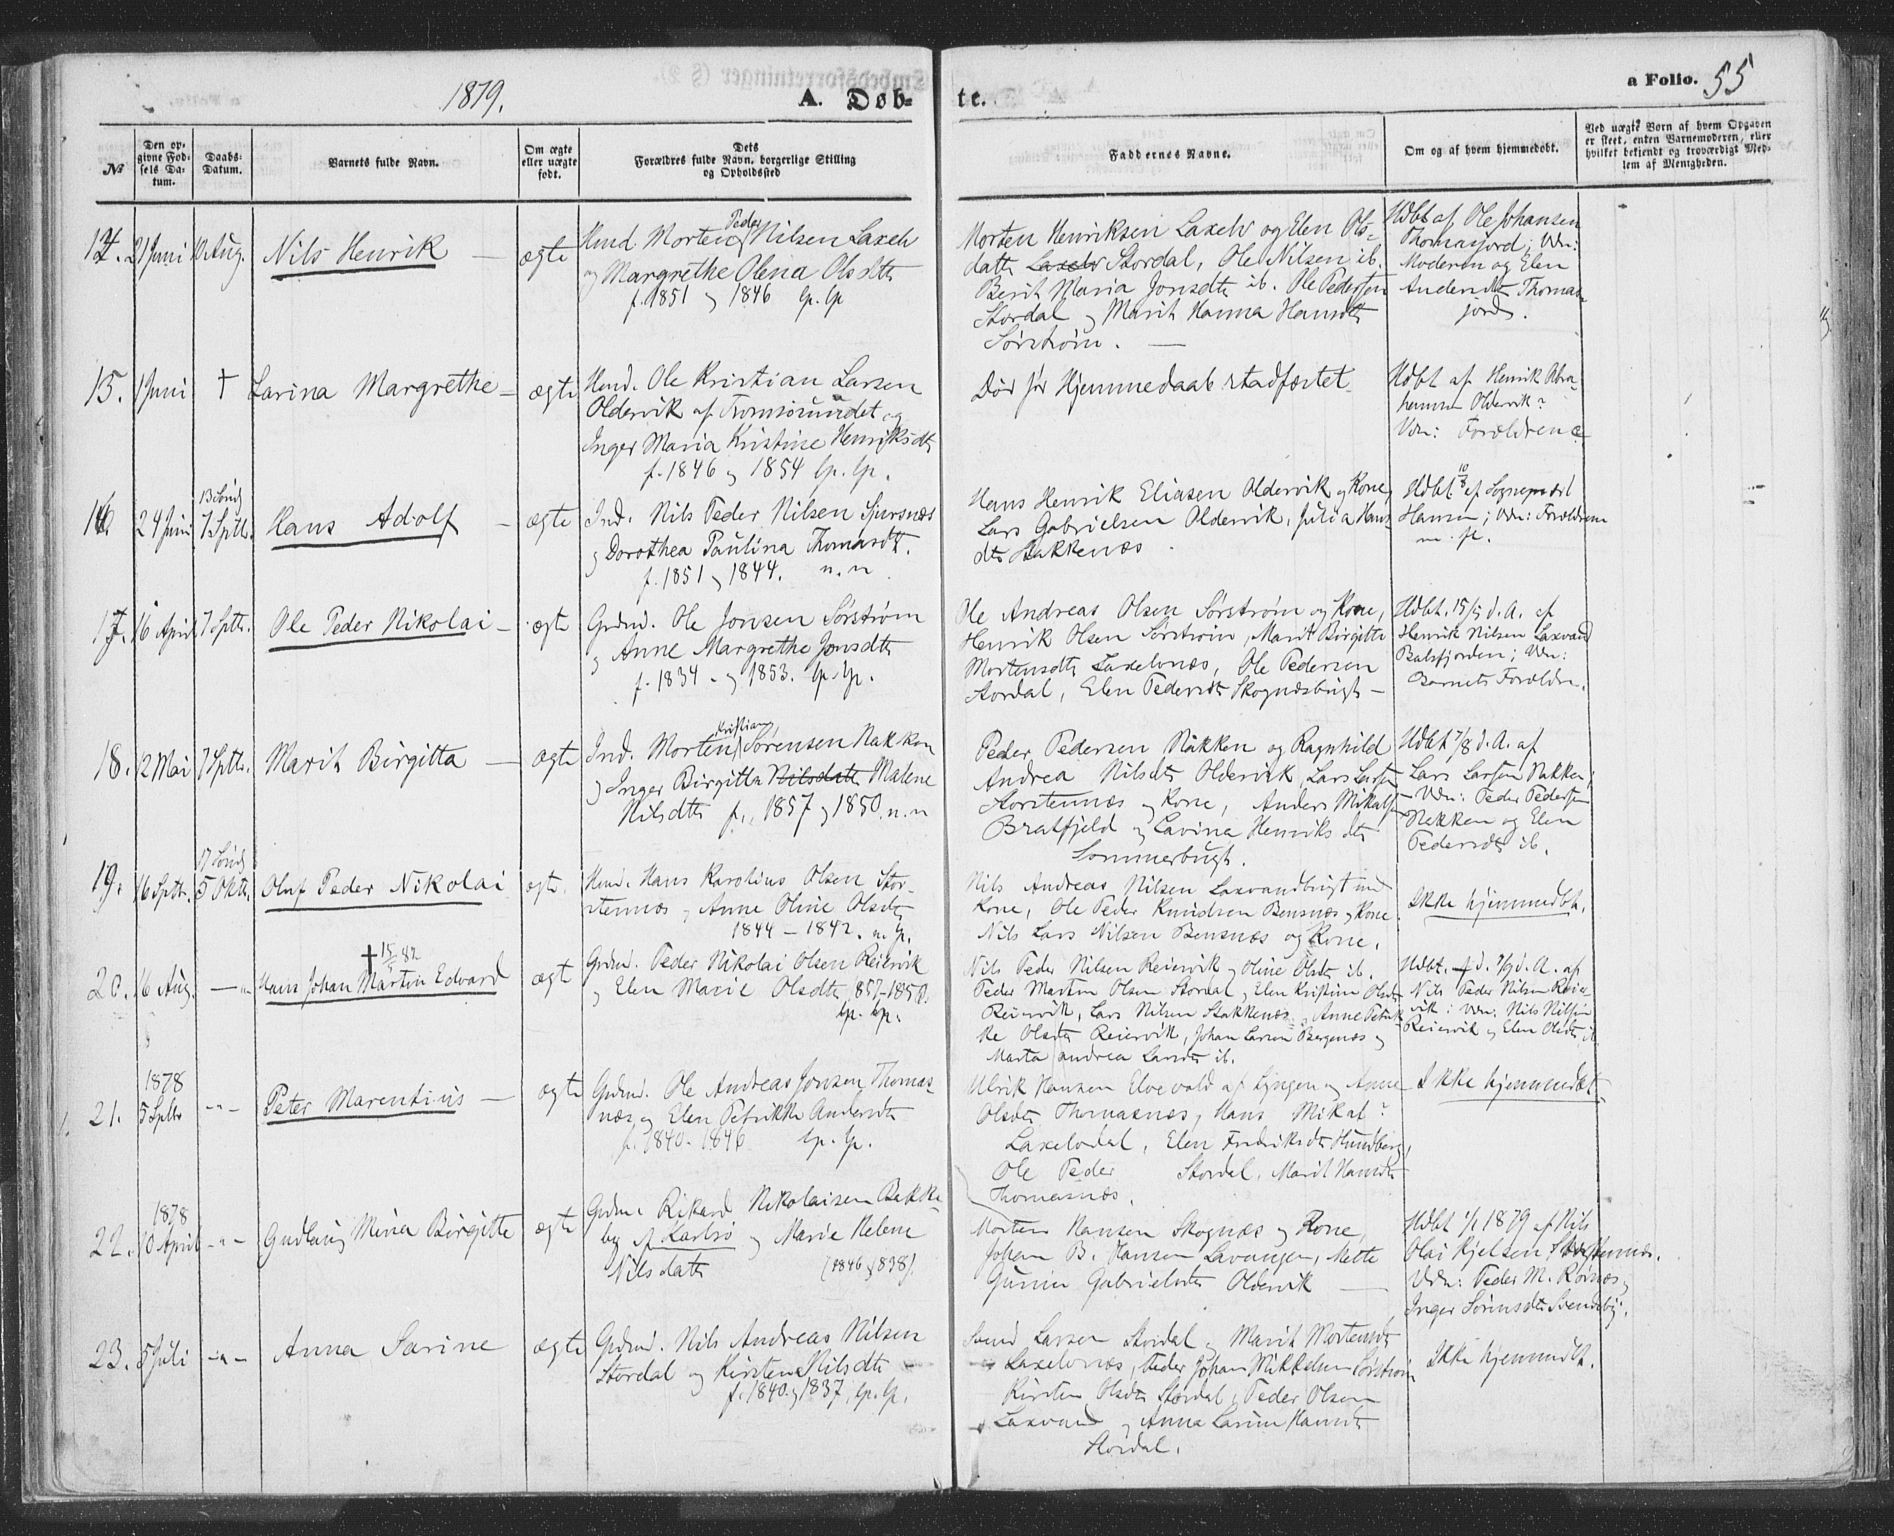 1879.
A. Døb-
te.
a Folio. 55
№
Den op-
givne Fød-
sels Da-
tum.
Daabs-
Datum.
Barnets fulde Navn.
Om ægte
eller uægte
født.
Dets
Forældres fulde Navn, borgerlige Stilling
og Opholdssted
Faddernes Navne.
Om og af hvem hjemmedøbt.
Ved uægte Børn af hvem Opgaven
er skeet, enten Barnemoderen, eller
hvilket bekjendt og troværdigt Med-
lem af Menigheden.
14. 21 Juni 10 Aug. Nils Henrik — ægte
Peder
Morten Nilsen Laxelv
og Margrethe Olena Olsdtr
f. 1851 og 1846 lp. lp
Morten Henriksen Laxelv og Elen Ols-
datter Laxelv Stordal, Ole Nilsen ib.
Berit Maria Jonsdtr ib. Ole Pedersen
Stordal og Marit Hanna Hansdtr
Sørstrøm. —
Hdbt af Ole Johansen
Thomasjord; Vdn:
Moderen og Elen
Andersdtr Thomas-
jord.
15. 1 Juni † Larina Margrethe — ægte
Ole Kristian Larsen
Oldervik af Tromsøsundet og
Inger Maria Kristine Henriksdtr
f. 1846 og 1854 lp. lp.
Død før Hjemmedaab stadfæstet
Hdbt af Henrik Abra-
hamsen Oldervik?
Vdn: Forældrene
16. 24 Juni 7 Sptb. Hans Adolf — ægte
13 Sønd
Ind. Nils Peder Nilsen Sjursnæs
og Dorothea Paulina Thomasdtr.
f. 1851 og 1844. n. n
Hans Henrik Eliasen Oldervik og Kone,
Lars Gabrielsen Oldervik, Julia Hans-
dtr Stakkenæs.
Hdbt 10/8 af
Hansen; Vdn: Forældrene
m. fl.
17. 16 April 7 Sptb. Ole Peder Nikolai — ægte
Grdmd. Ole Jonsen Sørstrøm
og Anne Margrethe Jonsdtr
f. 1834 - og 1853. lp. lp.
Ole Andreas Olsen Sørstrøm og Kone,
Henrik Olsen Sørstrøm, Marit Birgitte
Mortensdtr Laxelvnæs, Ole Pedersen
Stordal, Elen Pedersdtr Skognæsbugt —
Hdbt. 15/5 d. A. af
Henrik Nilsen Laxvand
Balsfjorden; Vdn:
Barnets Forældre.
18. 12 Mai 7 Sptb. Marit Birgitta — ægte
Kristian
Ind. Morten Sørensen Nakken
og Inger Birgitta Nilsdatr Malene
Nilsdtr f. 1857 og 1850. n. n
Peder Pedersen Nakken og Ragnhild
Andrea Nilsdtr Oldervik, Lars Larsen
Storstennæs og Kone, Anders Mikalsen
Bratfjeld og Lavina Henriksdtr
Sommerbugt.
Hdbt 7/8 d. A. af
Lars Larsen Nakken;
Vdn: Peder Pedersen
Nakken og Elen
Pedersdtr ib.
19. 16 Sptb. 5 Oktb. Oluf Peder Nikolai ægte.
17 Sønd
Hans Karolius Olsen Stor-
stennæs og Anne Oline Olsdtr
1844 — 1842. n. lp.
Nils Andreas Nilsen Laxvandbugt med
Kone, Ole Peder Knudsen Bensnæs og Kone
Nils Lars Nilsen Bensnæs og Kone.
Ikke hjemmedbt.
† 15/5 82
20. 16 Aug. — „ — Hans Johan Martin Edvard ægt
Grdmd. Peder Nikolai Olsen Reiervik
og Elen Marie Olsdtr, 1857-1850.
lp. lp.
Nils Peder Nilsen Reiervik og Oline Olsdtr ib.
Peder Morten Olsen Stordal og Elen Kristine Olsdtr
Reiervik, Lars Nilsen Stakkenæs og Anne Petrik-
ke Olsdtr Reiervik, Johan Larsen Bergenæs og
Marta Andrea Larsdtr ib.
Hdbt. d. 7/9 d. A. af
Nils Peder Nilsen Reier-
vik; Vdn: Nils Nilsen
Reiervik og Elen Olsdtr ib
1878
21. 5 Sptb - „ - Peter Marentius — ægte
Grdmd. Ole Andreas Jonsen Thomas-
næs og Elen Petrikke Andersdtr
f. 1840. 1846 lp. lp.
Ulrik Hansen Elvevold af Lyngen og Anne
Olsdtr Thomasnæs, Hans Mikal?
Laxelvdal, Elen Fredriksdtr Hundberg,
Ole Peder Stordal, Marit Hansdtr
Thomasnæs.
Ikke hjemmedbt
1878
22. 10 April - „ - Gudlaug Mina Birgitte ægte
Grdm. Rikard Nikolaisen Bakke-
by af Karlsø og Marie Helene
Nilsdatr (1846 og 1838).
Morten Hansen Skognæs og Kone,
Johan B. Hansen Lavangen, Mette
Gunine Gabrielsdtr Oldervik —
Hdbt 1/1 1879 af Nils
Olai Kjelsen Storstennæs.
Vdn: Peder M. Rørnæs og
Inger Sørensdtr Svendsby.
23. 5 Juli - „ - Anna Sarine ægte
Grdmd. Nils Andreas Nilsen
Stordal og Kirsten Nilsdtr
f. 1840 og 1837, lp. lp.
Larsen Stordal og Marit Mortensdtr
Laxelvnæs, Peder Johan Mikkelsen Sørstrøm
Kirsten Olsdtr Stordal, Peder Olsen
Laxvand og Anna Larine Hansdtr
Stordal.
Ikke hjemmedbt.